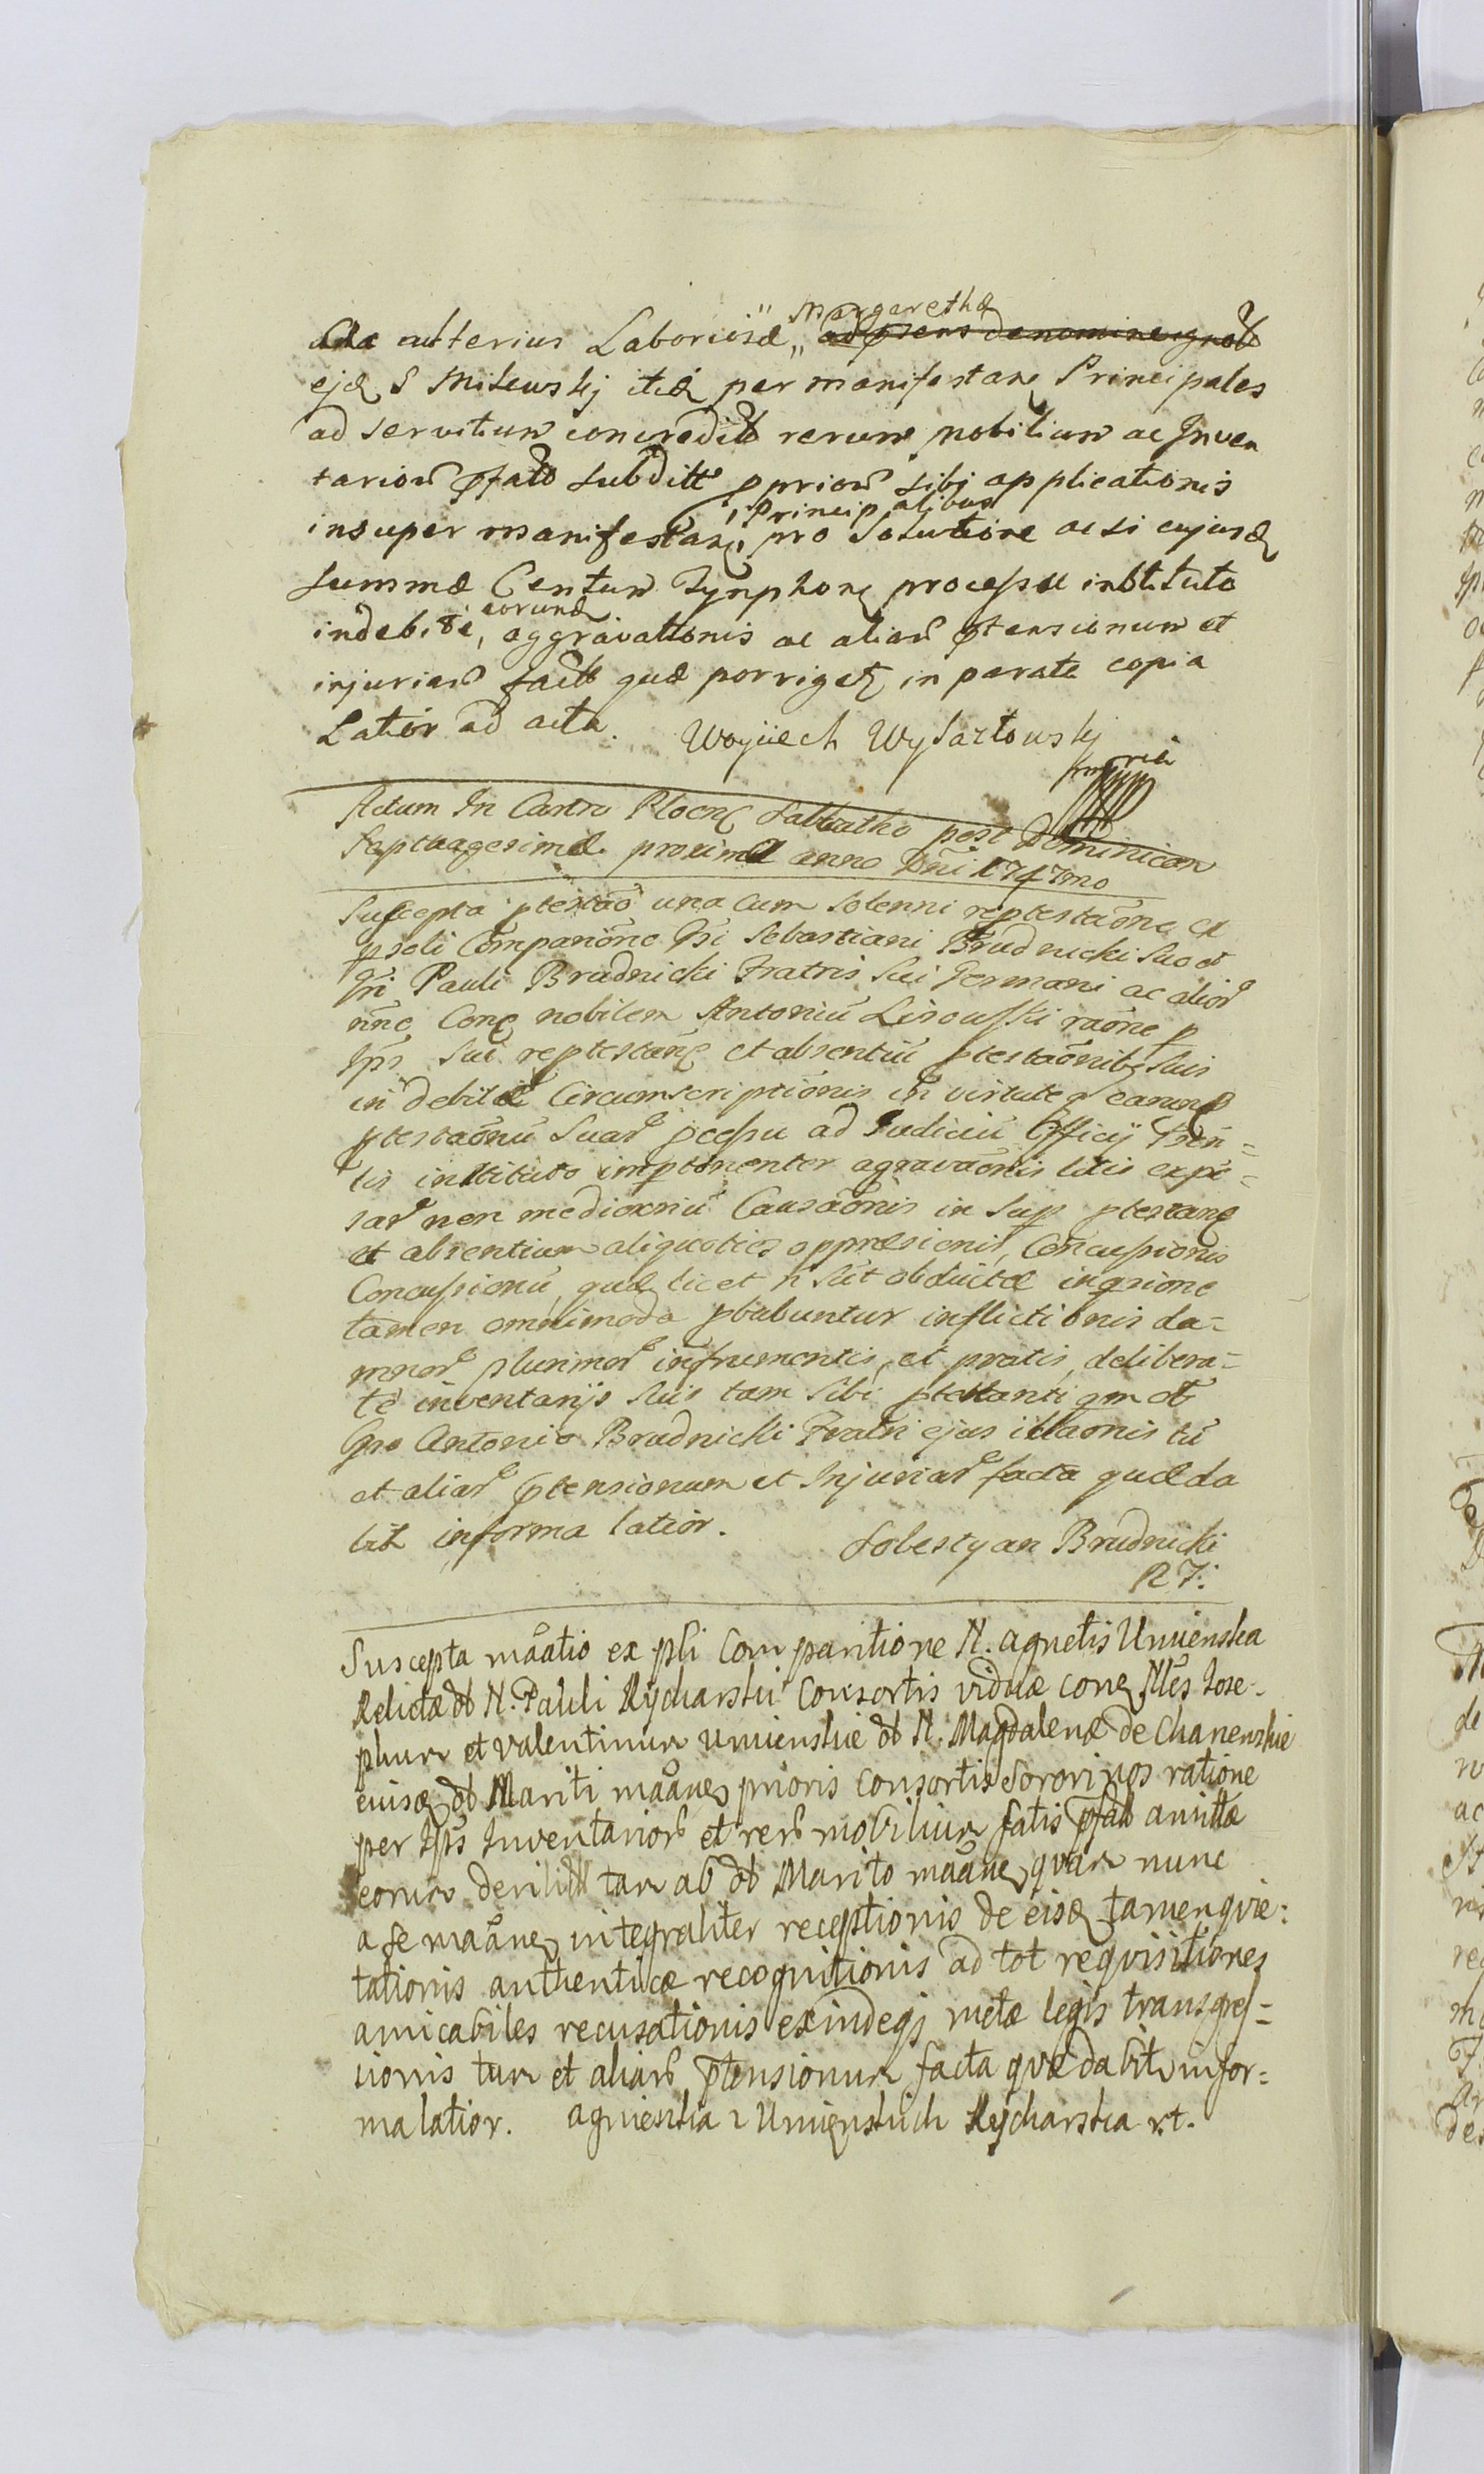 ulterius Laboriosæ " Margarethæ
ejdꝫ S Milewskj itidꝫ per manifestanꝭ Principales
ad servitium concredit rerum mobilium ac Inven
tarior pfato subditt pprior sibj applicationis
insuper manifestanꝭ, Principalibus pro Solutione acsi cujusdꝫ
summæ Centum Tynphonꝭ processu instituto
indebite, eorundꝫ aggravationis ac aliar ptensionum et
injuriar factt quæ porrigetꝭ in parata copia
Latior ad acta. Woyciech Wysarłowskj
mpria
Actum In Castro Plocenꝭ Sabbatho post Dominicam
Septuagesimæ proxima anno Dni 1747mo
Suscepta ptestao una cum solenni reptestaone ex
psoli Comparione Gsi Sebastiani Brudnicki suo et
Gsi Pauli Brudnicki Fratris sui Germani ac alior
nne Conꝭ nobilem Antoniu Lisowski raone p
Ips sui reptestanꝭ et absentiu ptestaonibꝫ suis
indebitæ Circumscriptionis in virtute earund
ptestaonu suar pcessu ad Judiciu Officij Cren=
sis instituto imptinenter agravaonis litis expe=
sar non mediocriu Causaonis in sup ptestanꝭ
et absentium aliquoties oppræsionis, Concussionis
Concussionu, quæ licet n sut obductæ inqsione
tamen omnimoda pbabuntur inflictionis da=
mnor plurimor infrumentis, et pratis, delibera=
te inventarijs suis tam sibi ptestanti qm et
Gso Antonio Brudnicki Fratri ejus illaonis tu
et aliar ptensionum et Injuriar facta quæ da
bit informa latior. Sobestyan Brudnicki
R T:
Suscepta maatio ex psli Comparitione N. Agnetis Umienska
Relictæ olt N. Pauli Rycharski Consortis viduæ conꝭ Nles Jose-
phum et Valentinum Umienskie olt N. Magdalenæ de Chanenskie
eiusdꝫ olt Mariti maanꝭ prioris Consortis Sororinos ratione
per Ips Inventarior et rer mobilium fatis pfato amittæ
eorum tam ab olt Marito maanꝭ quam nunc
a se maanꝭ integraliter receptionis de eisdꝫ tamen quie:
tationis authenticæ recognitionis ad tot requisitiones
amicabiles recusationis exindeqꝫ metæ legis transgres=
sionis tum et aliar ptensionum facta quæ dabit infor=
ma latior. Agnieszka z Umienskich Rycharska r.t.